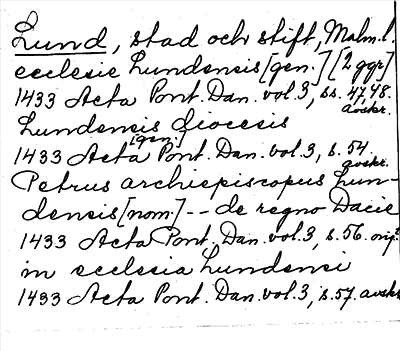 Lund, stad och stift, Malm. l.
ecclesie Lundensis [gen.] [2 ggr]
1433 Acta Pont. Dan. vol. 3, ss. 47, 48. avskr.
Lundensis diocesis [gen.]
1433 Acta Pont. Dan. vol. 3, s. 54. avskr.
Petrus archiepiscopus Lun-
densis [nom.] -- de regno Dacie
1433 Acta Pont. Dan. vol. 3, s. 56. orig.
in ecclesia Lundensi
1433 Acta Pont. Dan. vol. 3, s. 57. avskr